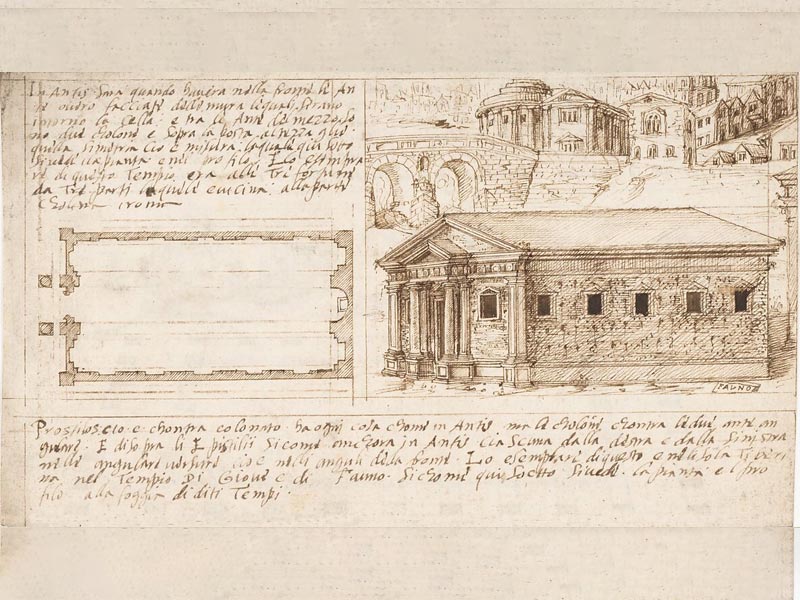 In Antis sara quando havera nella fronte le An
te overo facciate delle mura le quali serano
intorno la Cella e tra le Ante del mezzo so
no due cholone e sopra la posta altezza que
quella simetra cio e misura la quale qui sotto
si vede la pianta e nel profilo. Lo esempra
re di questo Tempio era alle Tre fortune
da Tre parti la quele e vicina alla porta
cholina
FAUNO
Prostilos cio e chontra colonato ha ogni cosa chome in Antis ma le cholone chontra le due ante an
gulare. E di sopra li E pistilii si come anchora in Antis ciascuna dalla destra e dalla sinistra
nelle angulare cio e nelli anguli dela fronte. Lo esemplare di questo e nella isola Tiveri
na nel Tempio Di Giove e di Fauno. Si chome qui sotto si vede la pianta e l pro
filo alla foggia di diti Tempi.